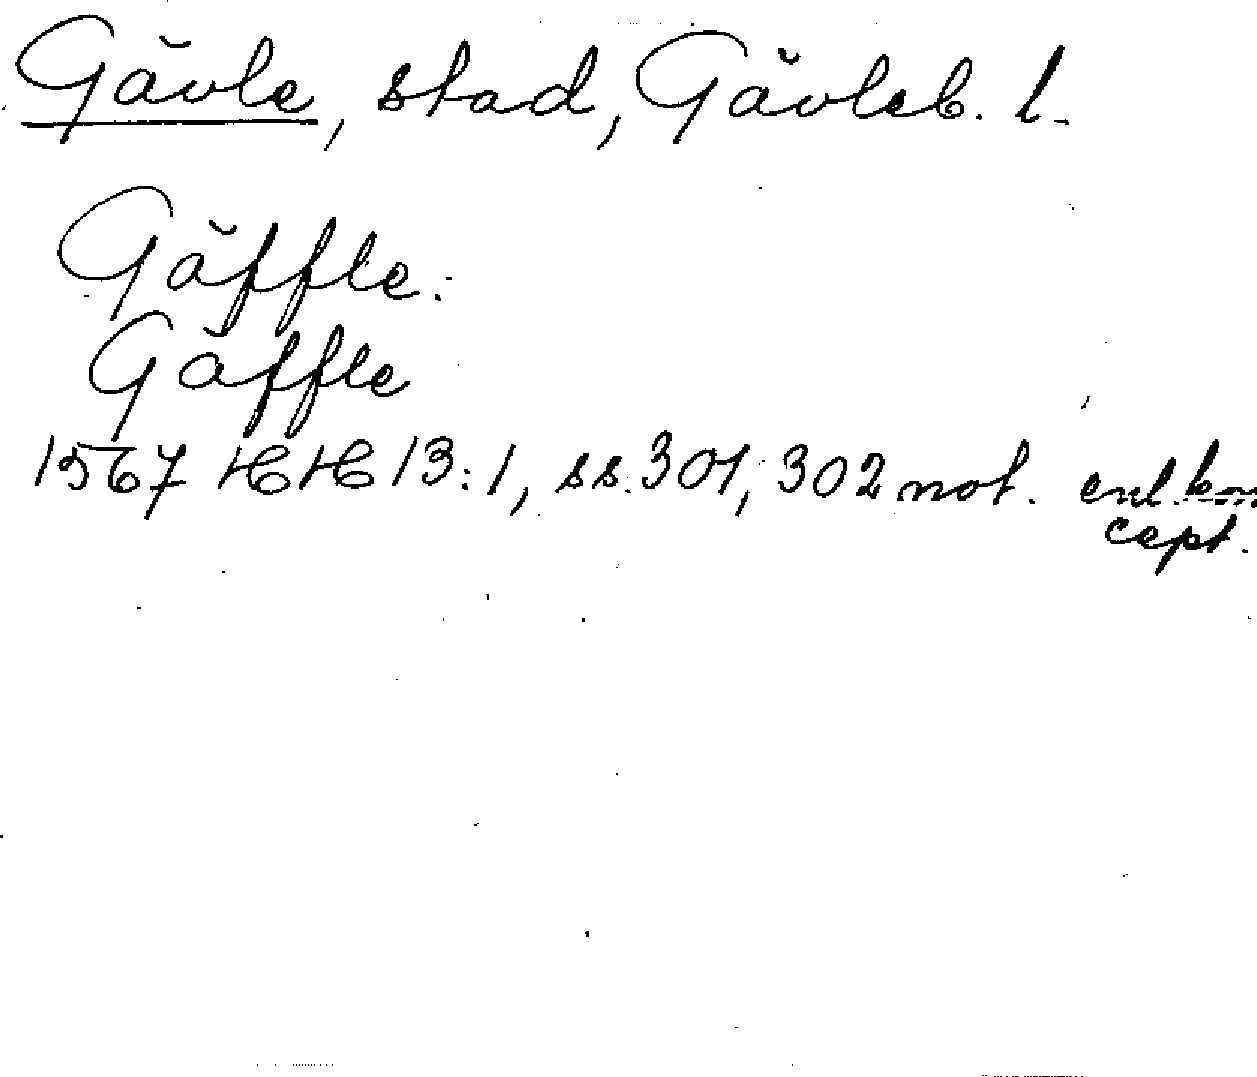 Gävle, stad, Gävleb. l.
Gäffle.
Gäffle
1567 HH 13:1, ss. 301, 302 not. enl. kon
cept.